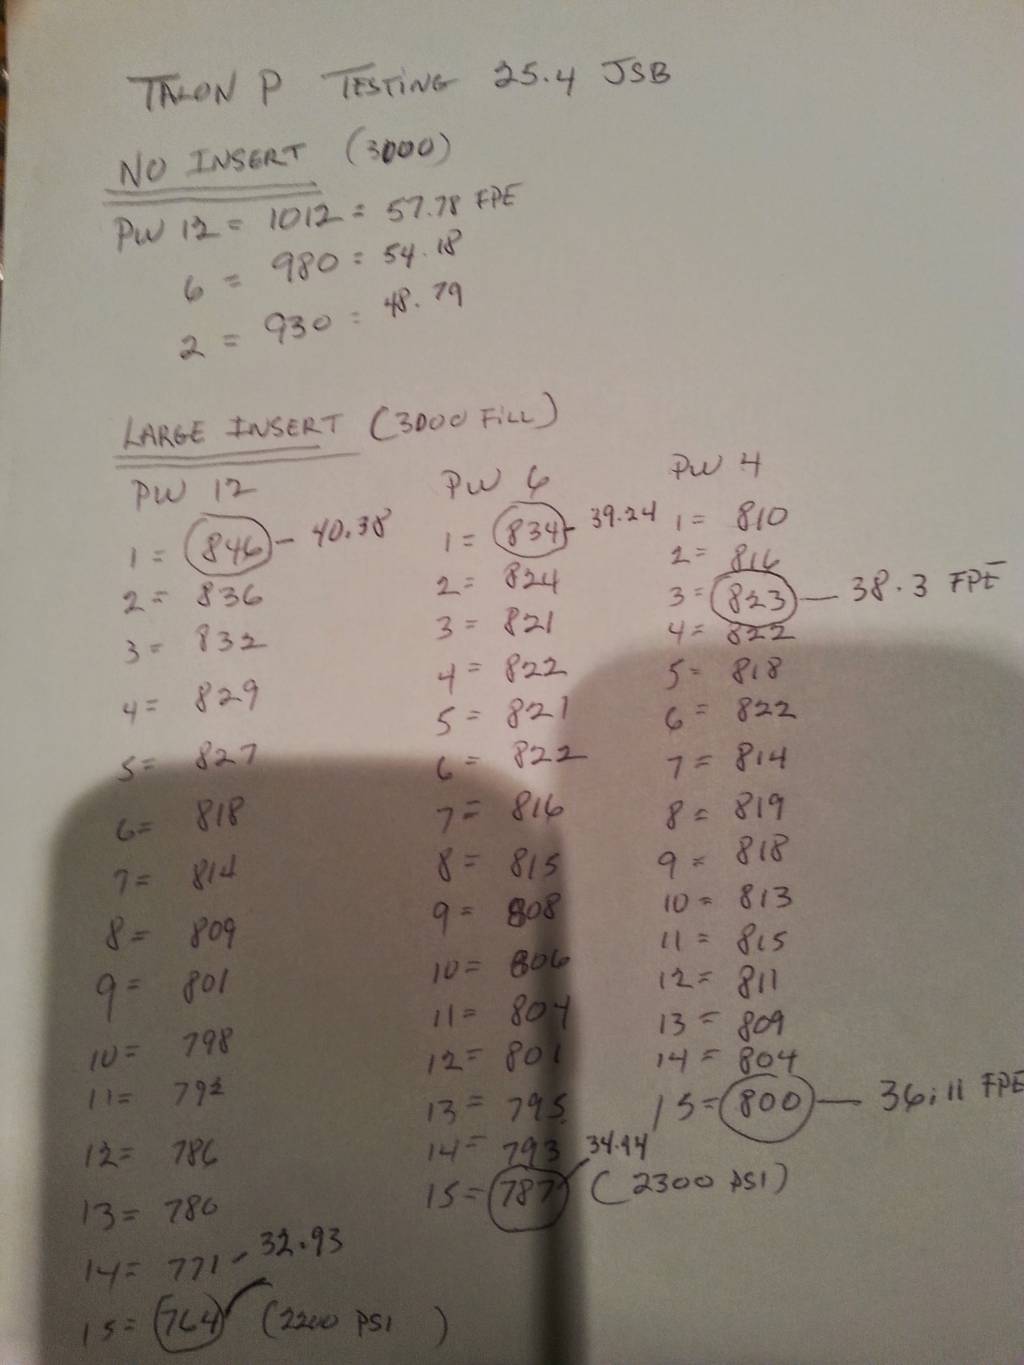 TALON P TESTING 25.4 JSB
NO INSERT (3000)
PW 12 = 1012 = 57.78 FPE
6 = 980 = 54.18
2 = 930 = 48.79
LARGE INSERT (3000 FILL)
PW 12
1 = 846 - 40.38
2 = 836
3 = 832
4 = 829
5 = 827
6 = 818
7 = 814
8 = 809
9 = 801
10 = 798
11 = 792
12 = 786
13 = 780
14 = 771 - 32.93
15 = 764 (2200 PSI)
PW 6
1 = 834 - 39.24
2 = 824
3 = 821
4 = 822
5 = 821
6 = 822
7 = 816
8 = 815
9 = 808
10 = 806
11 = 804
12 = 801
13 = 795
14 = 793 34.94
15 = 787 (2300 PSI)
PW 4
1 = 810
2 = 816
3 = 823 — 38.3 FPE
4 = 822
5 = 818
6 = 822
7 = 814
8 = 819
9 = 818
10 = 813
11 = 815
12 = 811
13 = 809
14 = 804
15 = 800 — 36.11 FPE